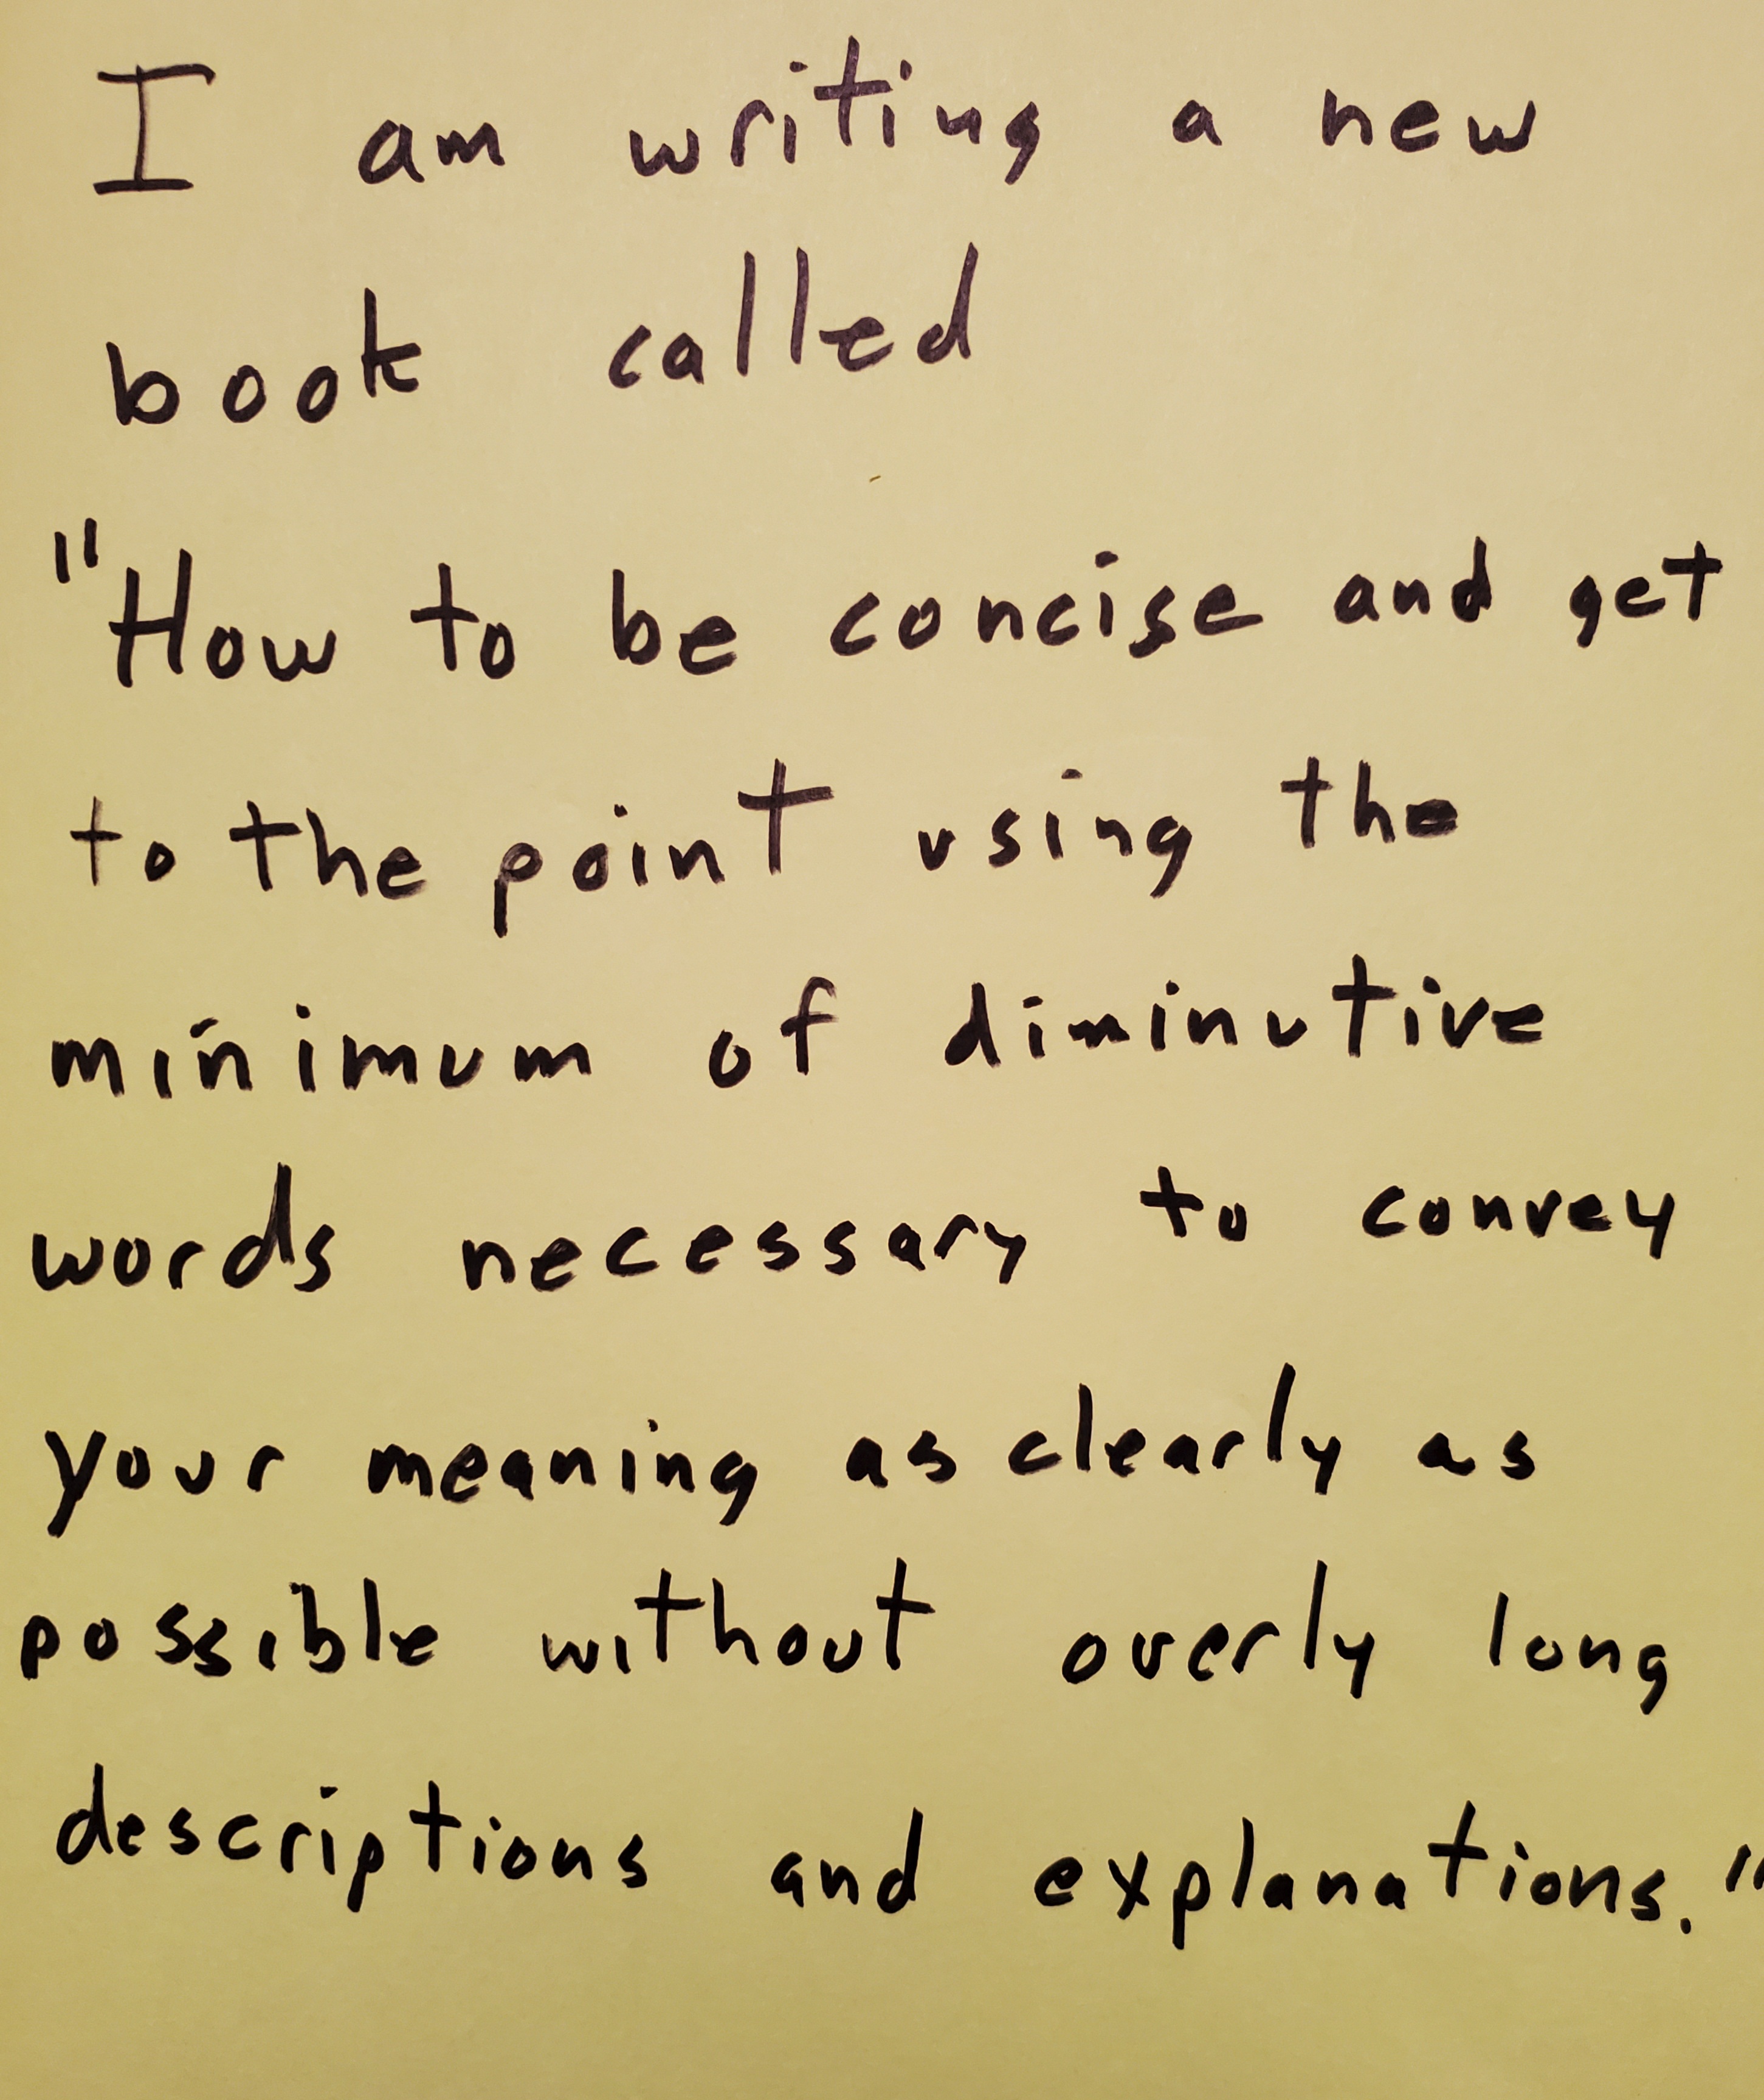 I am writing a new
book called
"How to be concise and get
to the point using the
minimum of diminutive
words necessary to convey
your meaning as clearly as
possible without overly long
descriptions and explanations."